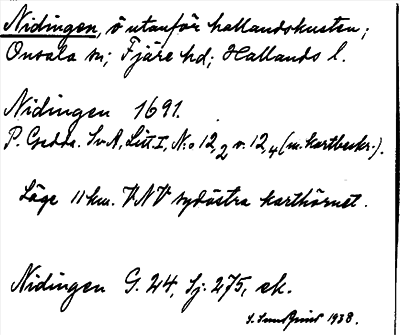 Nidingen, ö utanför hallandskusten;
Onsala sn; Fjäre hd; Hallands l.
Nidingen 1691.
P. Gedda. SvA, Litt I, N:o 12,2 o. 12,4 (m. kartbeskr.).
Läge 11 km. VNV sydöstra karthörnet.
Nidingen G. 24, Sj. 275, ek.
1938.